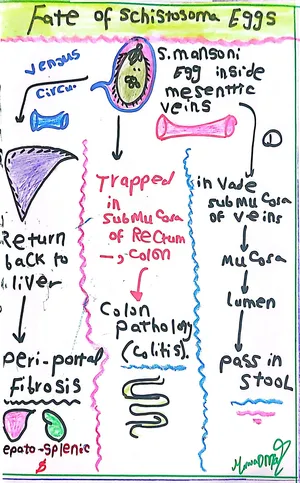 Fate of Schistosoma Eggs
venous
circu.
S.mansoni
Egg inside
mesentric
veins
①
Return
back to
liver
peri-portal
Fibrosis
epato-splenic
Trapped
in
submucosa
of Rectum
colon
Colon
pathology
(colitis).
invade
submucosa
of veins
Mucosa
Lumen
pass in
stool